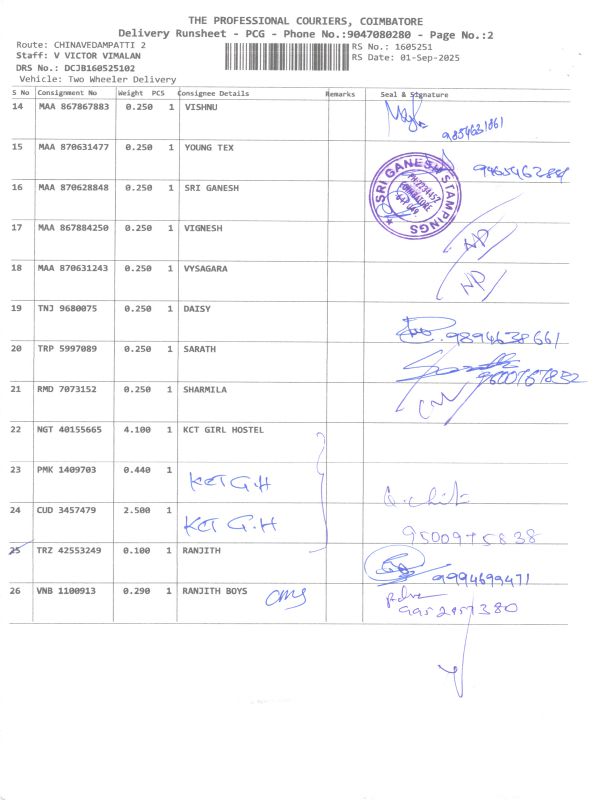 THE PROFESSIONAL COURIERS, COIMBATORE
Delivery Runsheet - PCG - Phone No.:9047080280 - Page No.:2
Route: CHINAVEDAMPATTI 2
RS No.: 1605251
Staff: V VICTOR VIMALAN
RS Date: 01-Sep-2025
DRS No.: DCJB160525102
Vehicle: Two Wheeler Delivery
S No Consignment No Weight PCS Consignee Details Remarks Seal & Signature
14 MAA 867867883 0.250 1 VISHNU
9854631861
15 MAA 870631477 0.250 1 YOUNG TEX
16 MAA 870628848 0.250 1 SRI GANESH
SRI GANESH STAMPINGS
17 MAA 867884250 0.250 1 VIGNESH
NP
18 MAA 870631243 0.250 1 VYSAGARA
NP
19 TNJ 9680075 0.250 1 DAISY
9894638661
20 TRP 5997089 0.250 1 SARATH
9600767832
21 RMD 7073152 0.250 1 SHARMILA
22 NGT 40155665 4.100 1 KCT GIRL HOSTEL
23 PMK 1409703 0.440 1 KCT G.H
24 CUD 3457479 2.500 1 KCT G.H
9500975838
25 TRZ 42553249 0.100 1 RANJITH
9994699471
26 VNB 1100913 0.290 1 RANJITH BOYS
9952957380